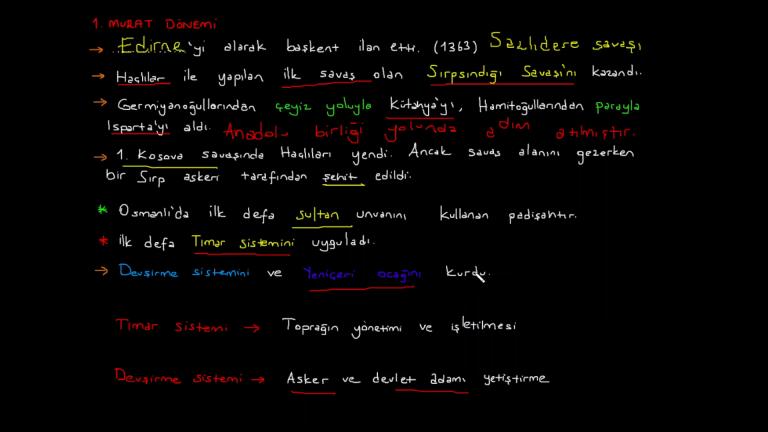 1. MURAT DÖNEMİ
→ Edirne'yi alarak başkent ilan etti. (1363) Sazlıdere savaşı
→ Haçlılar ile yapılan ilk savaş olan Sırpsındığı Savaşı'nı kazandı.
→ Germiyanoğullarından çeyiz yoluyla Kütahya'yı, Hamitoğullarından parayla
Isparta'yı aldı. Anadolu birliği yolunda adım atılmıştır.
→ 1. Kosova savaşında Haçlıları yendi. Ancak savaş alanını gezerken
bir Sırp askeri tarafından şehit edildi.
* Osmanlı'da ilk defa sultan unvanını kullanan padişahtır.
* İlk defa Tımar sistemini uyguladı.
→ Devşirme sistemini ve Yeniçeri ocağını kurdu.
Tımar sistemi → Toprağın yönetimi ve işletilmesi
Devşirme sistemi → Asker ve devlet adamı yetiştirme